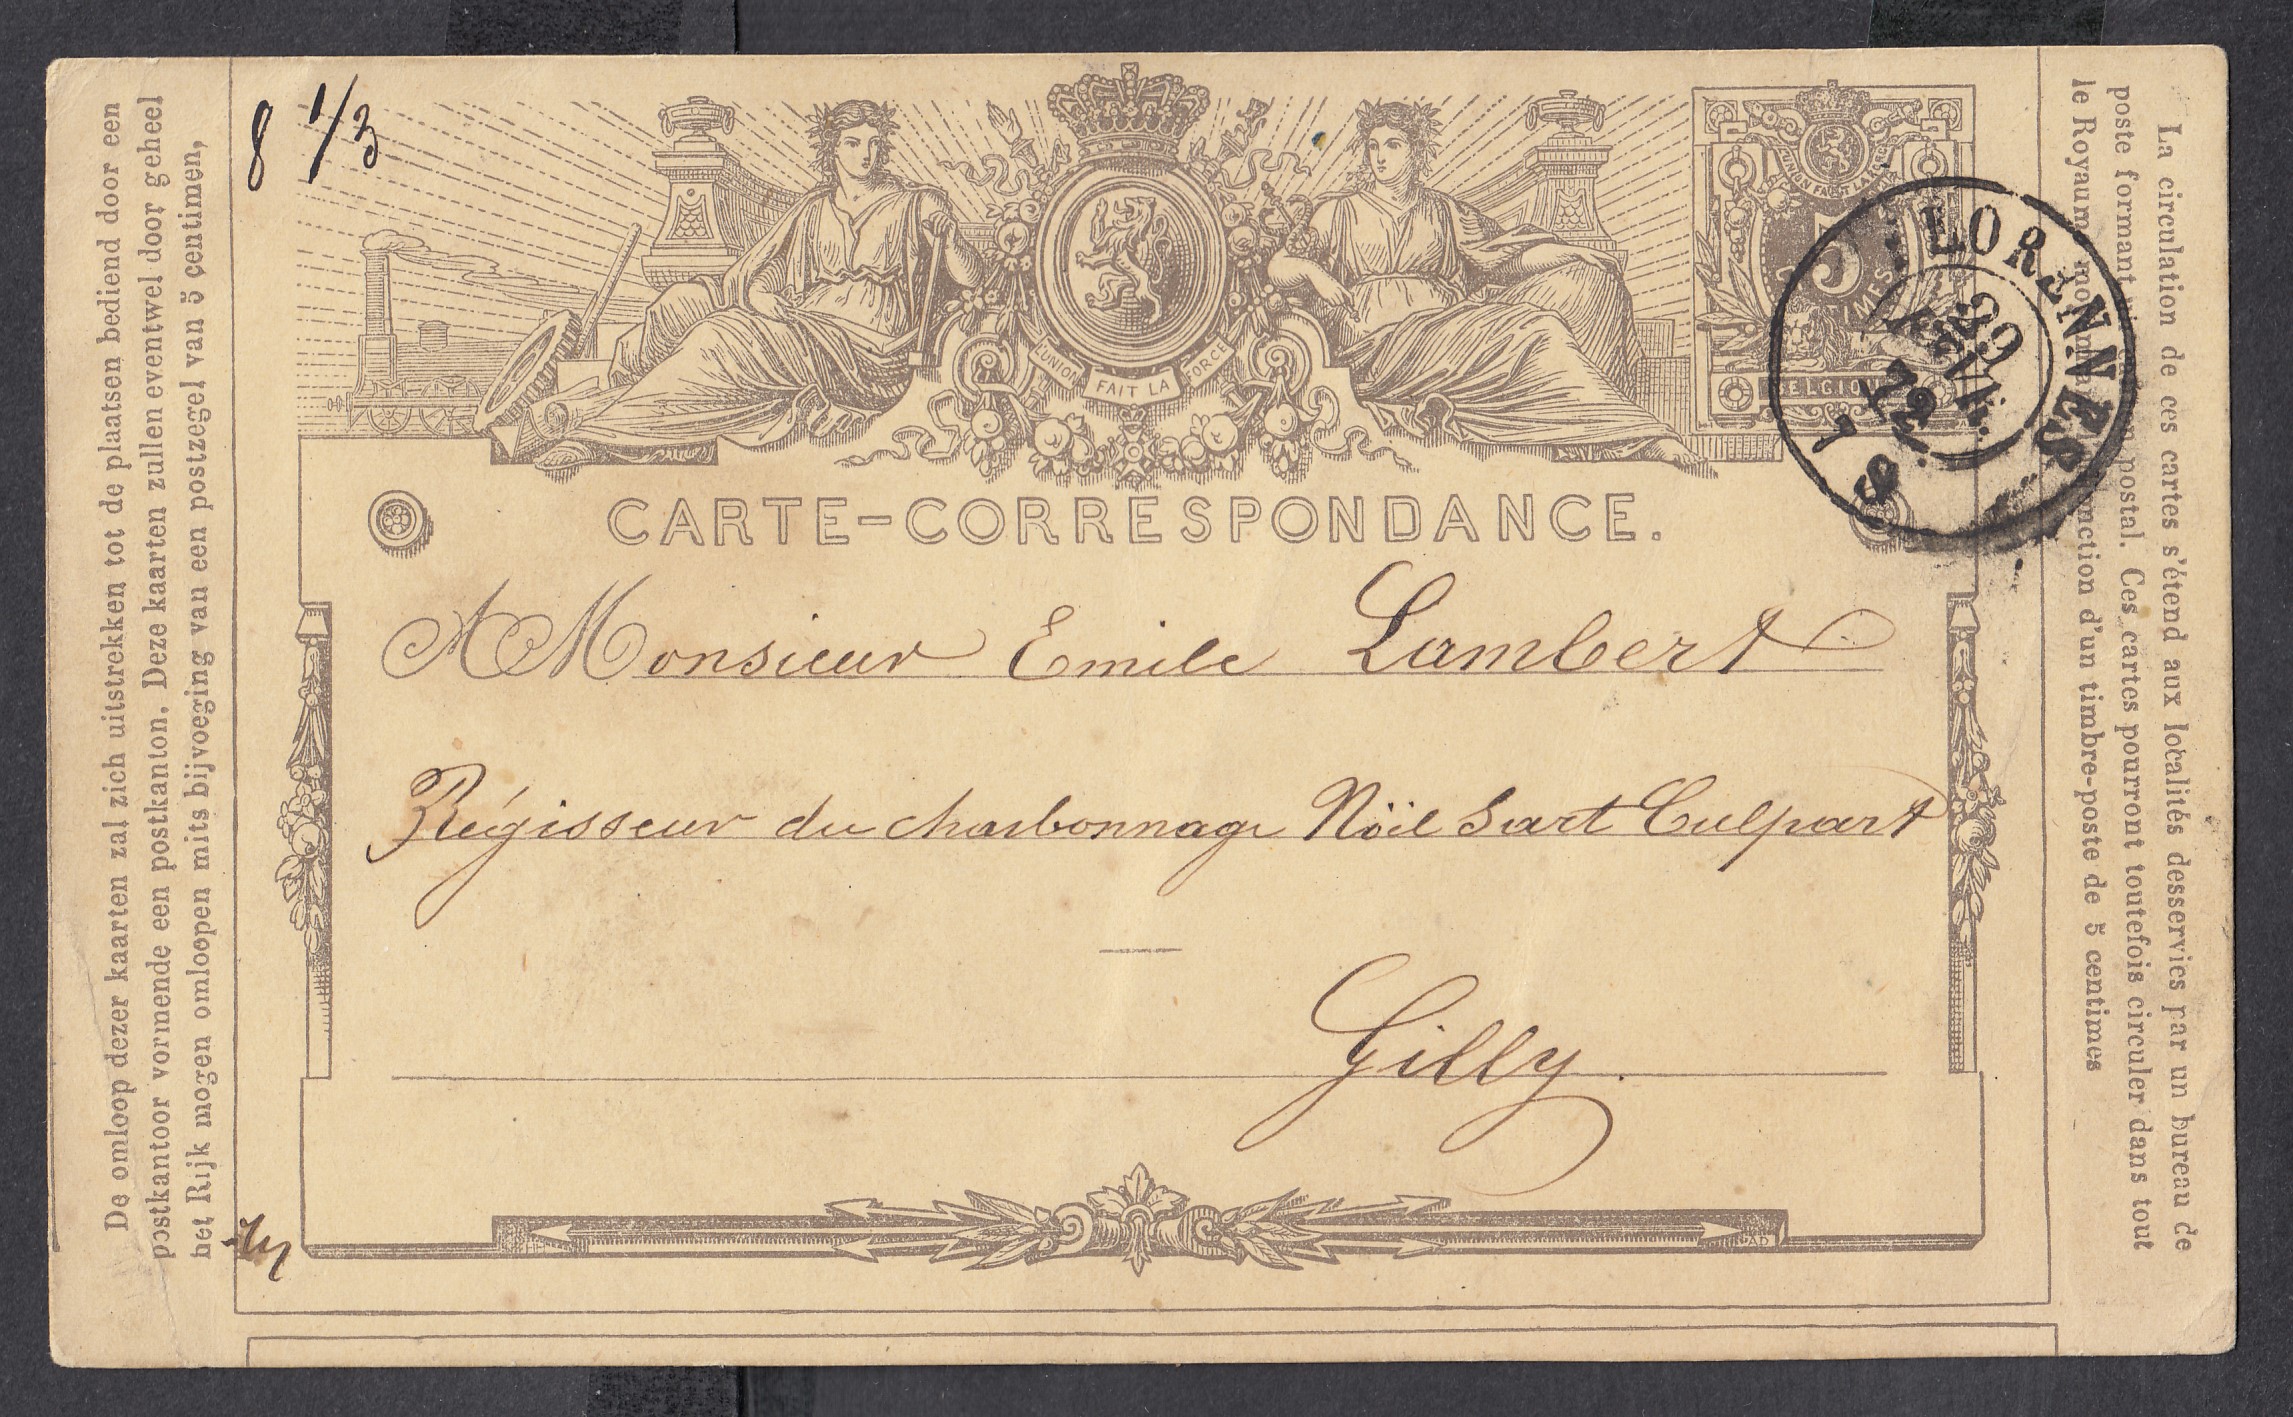 8 1/3
L'UNION FAIT LA FORCE
L'UNION FAIT LA FORCE
5
BELGIQUE
FLORENNES
29
FEVR.
72
7 S
CARTE-CORRESPONDANCE.
A Monsieur Emile Lambert
Régisseur du charbonnage Nöil Sart Culpart
Gilly.
De omloop dezer kaarten zal zich uitstrekken tot de plaatsen bediend door een
postkantoor vormende een postkanton. Deze kaarten zullen eventwel door geheel
het Rijk mogen omloopen mits bijvoeging van een postzegel van 5 centimen,
La circulation de ces cartes s'étend aux localités desservies par un bureau de
poste formant un canton postal. Ces cartes pourront toutefois circuler dans tout
le Royaume moyennant l'adjonction d'un timbre-poste de 5 centimes